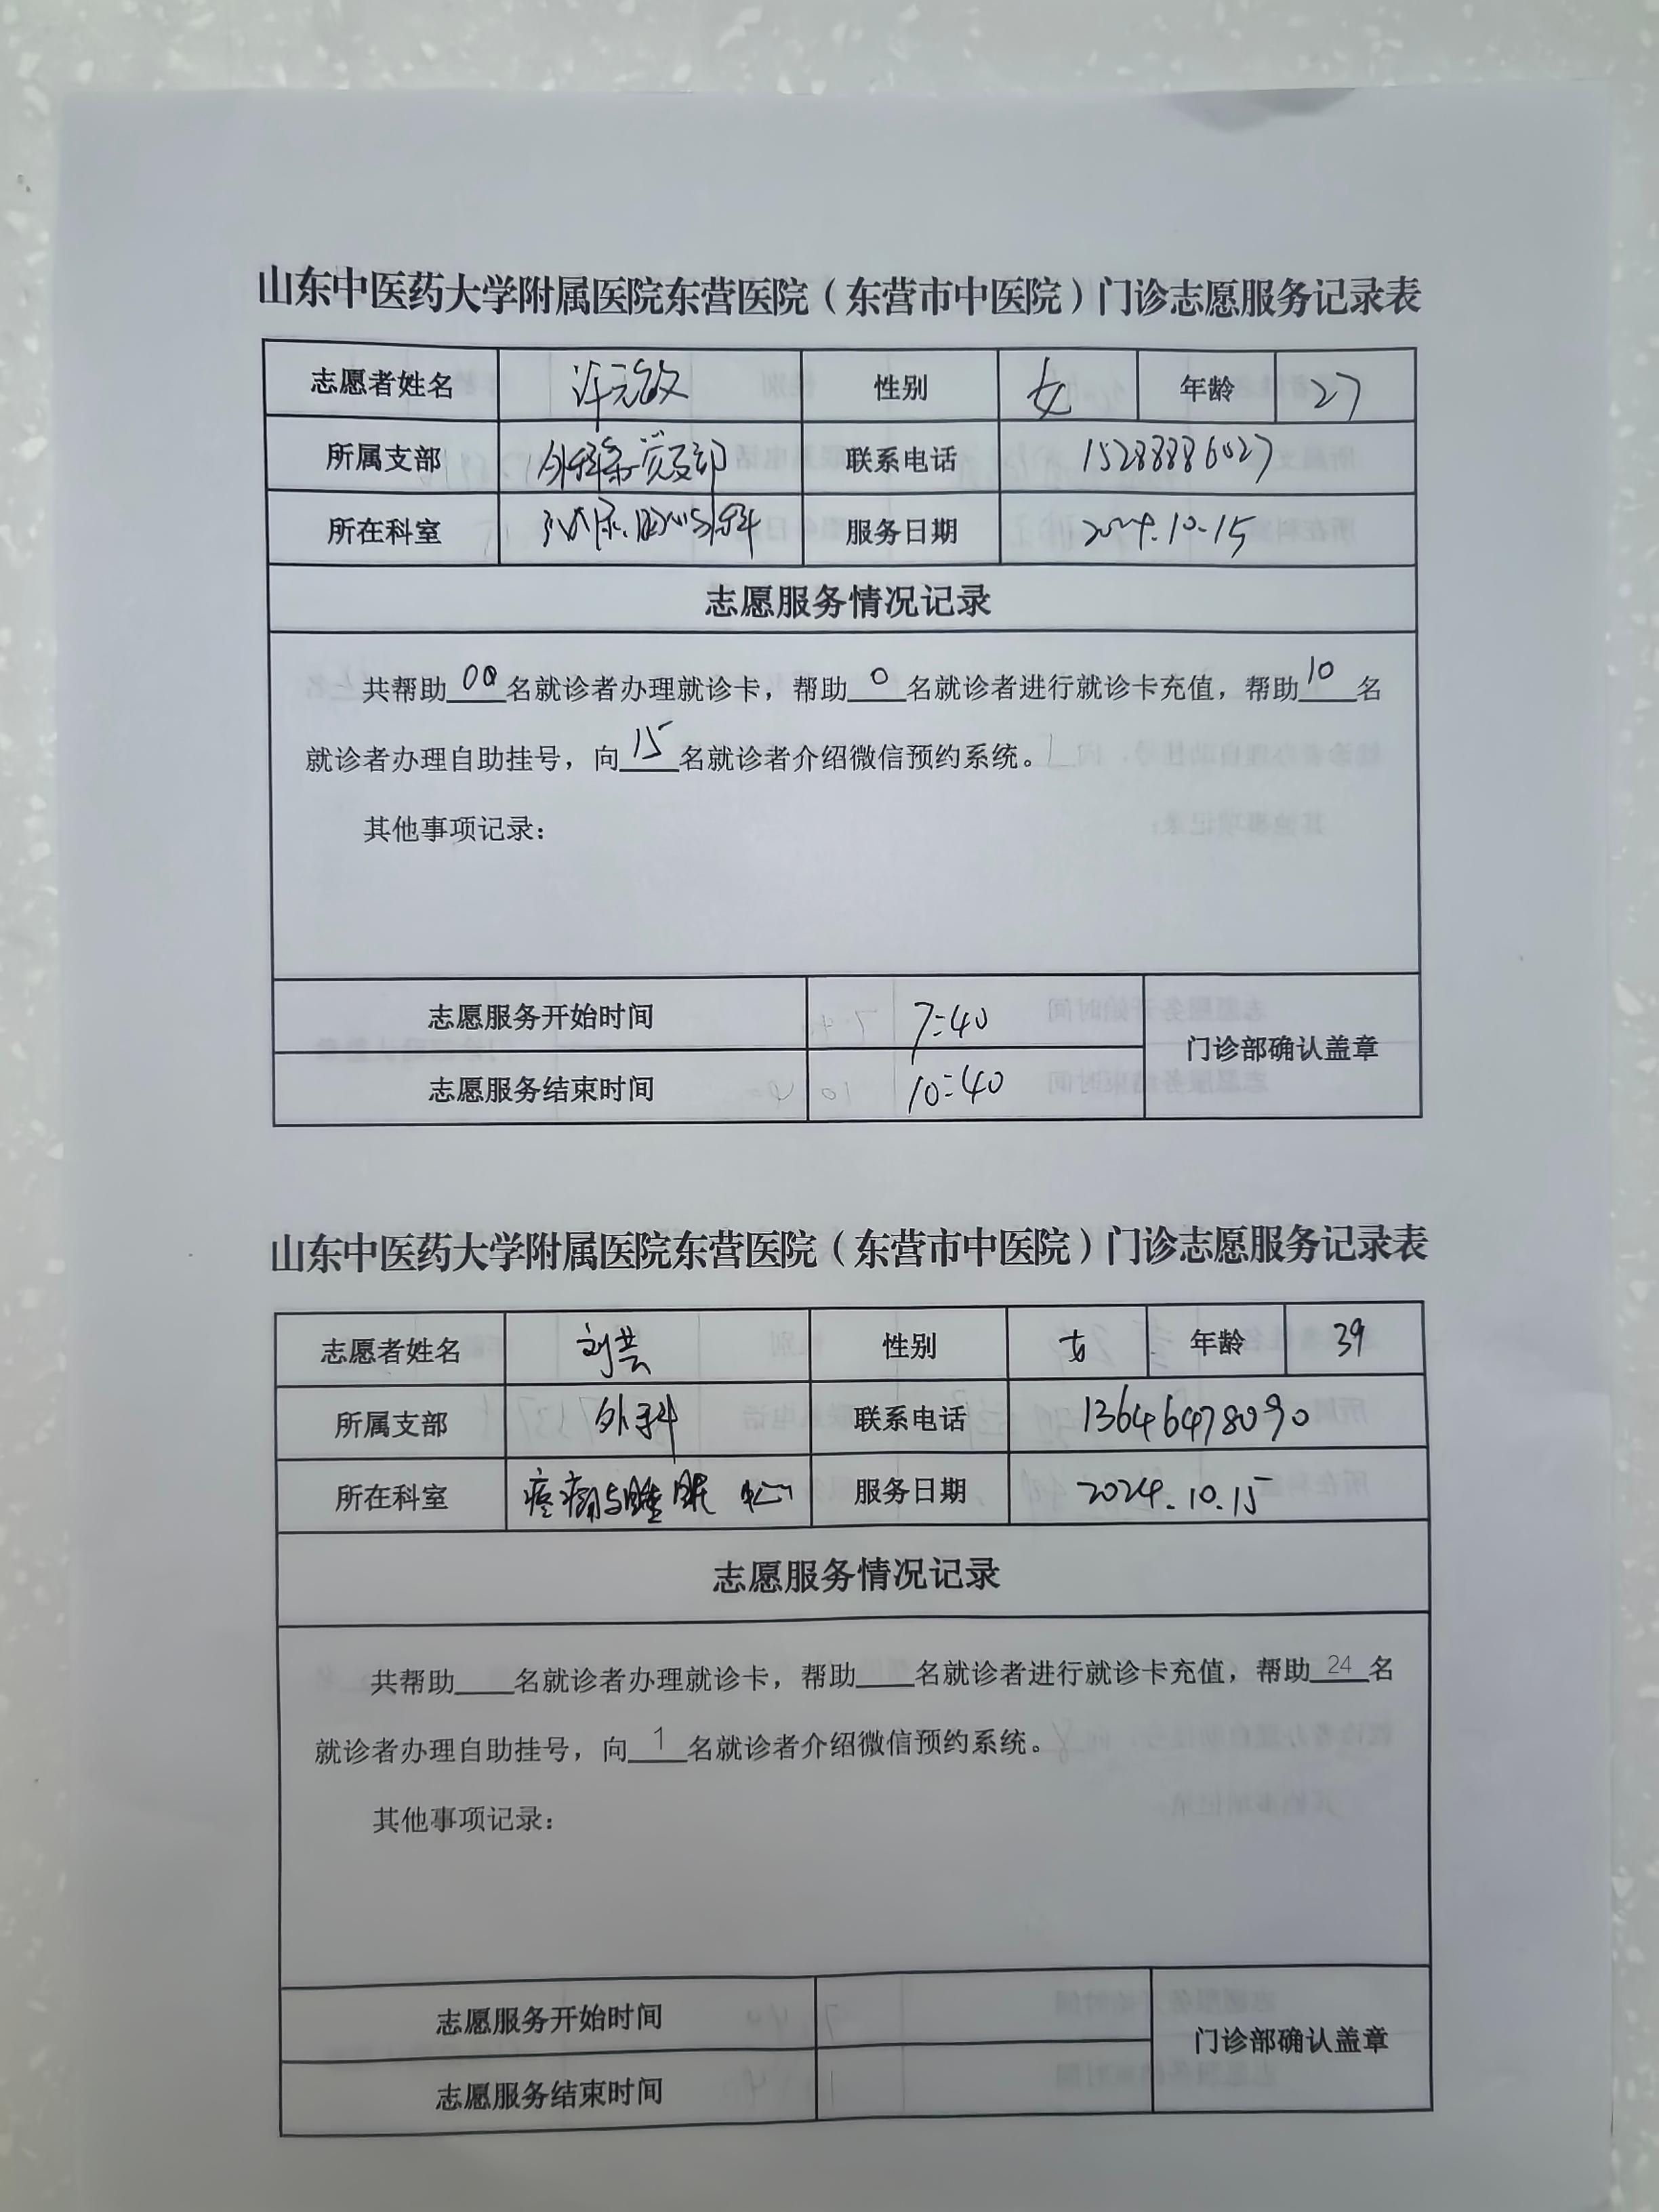 山东中医药大学附属医院东营医院（东营市中医院）门诊志愿服务记录表
志愿者姓名 许元敏 性别 女 年龄 27
所属支部 外科系党支部 联系电话 15288886027
所在科室 服务日期 2024.10.15
志愿服务情况记录
共帮助00名就诊者办理就诊卡，帮助0名就诊者进行就诊卡充值，帮助10名
就诊者办理自助挂号，向15名就诊者介绍微信预约系统。
其他事项记录：
志愿服务开始时间 7:40
门诊部确认盖章
志愿服务结束时间 10:40
山东中医药大学附属医院东营医院（东营市中医院）门诊志愿服务记录表
志愿者姓名 刘芸 性别 女 年龄 39
所属支部 外科 联系电话 13646478090
所在科室 疼痛与睡眠中心 服务日期 2024.10.15
志愿服务情况记录
共帮助____名就诊者办理就诊卡，帮助____名就诊者进行就诊卡充值，帮助24名
就诊者办理自助挂号，向1名就诊者介绍微信预约系统。
其他事项记录：
志愿服务开始时间
门诊部确认盖章
志愿服务结束时间